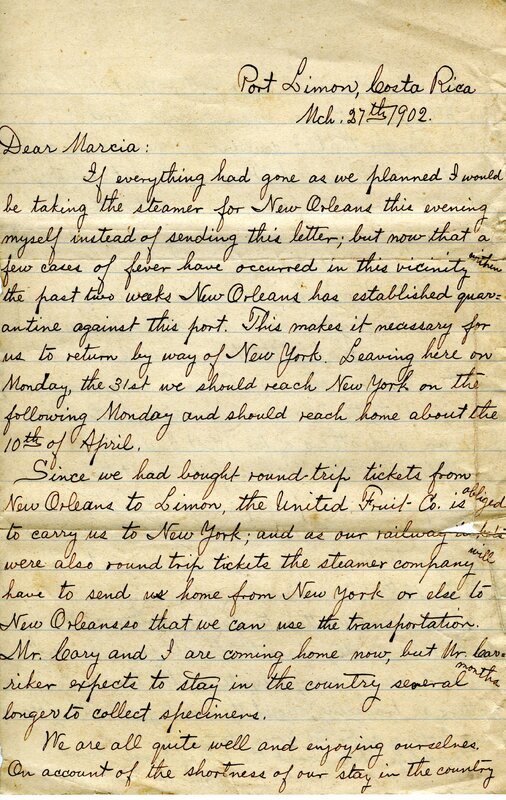 Port Limon, Costa Rica
Mch. 27th 1902.
Dear Marcia:
If everything had gone as we planned I would
be taking the steamer for New Orleans this evening
myself instead of sending this letter; but now that a
few cases of fever have occurred in this vicinity within
the past two weeks New Orleans has established quar=
antine against this port. This makes it necessary for
us to return by way of New York. Leaving here on
Monday, the 31st we should reach New York on the
following Monday and should reach home about the
10th of April.
Since we had bought round-trip tickets from
New Orleans to Limon, the United Fruit Co. is obliged
to carry us to New York; and as our railway
were also round trip tickets the steamer company will
have to send us home from New York or else to
New Orleans so that we can use the transportation.
Mr. Cary and I are coming home now, but Mr. Car=
riker expects to stay in the country several months
longer to collect specimens.
We are all quite well and enjoying ourselves.
On account of the shortness of our stay in the country